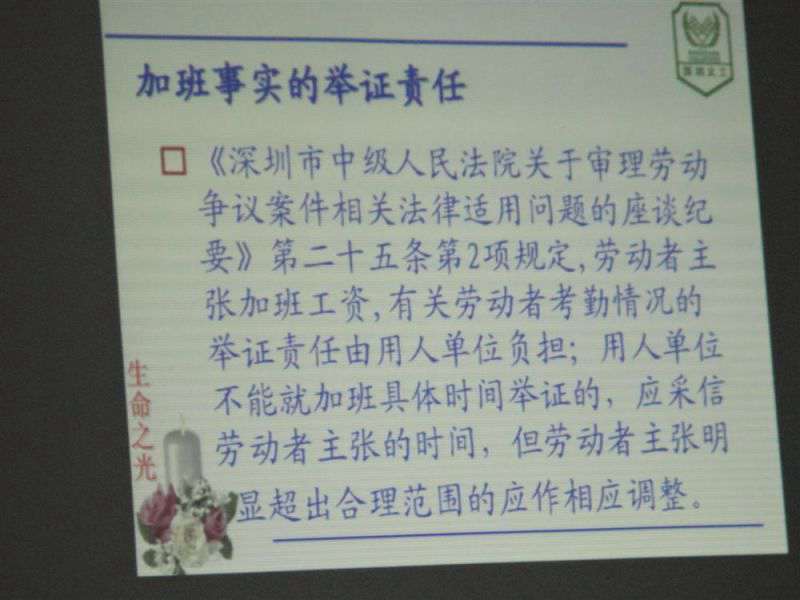 加班事实的举证责任
《深圳市中级人民法院关于审理劳动
争议案件相关法律适用问题的座谈纪
要》第二十五条第2项规定,劳动者主
张加班工资,有关劳动者考勤情况的
举证责任由用人单位负担；用人单位
不能就加班具体时间举证的，应采信
劳动者主张的时间，但劳动者主张明
显超出合理范围的应作相应调整。
生命之光